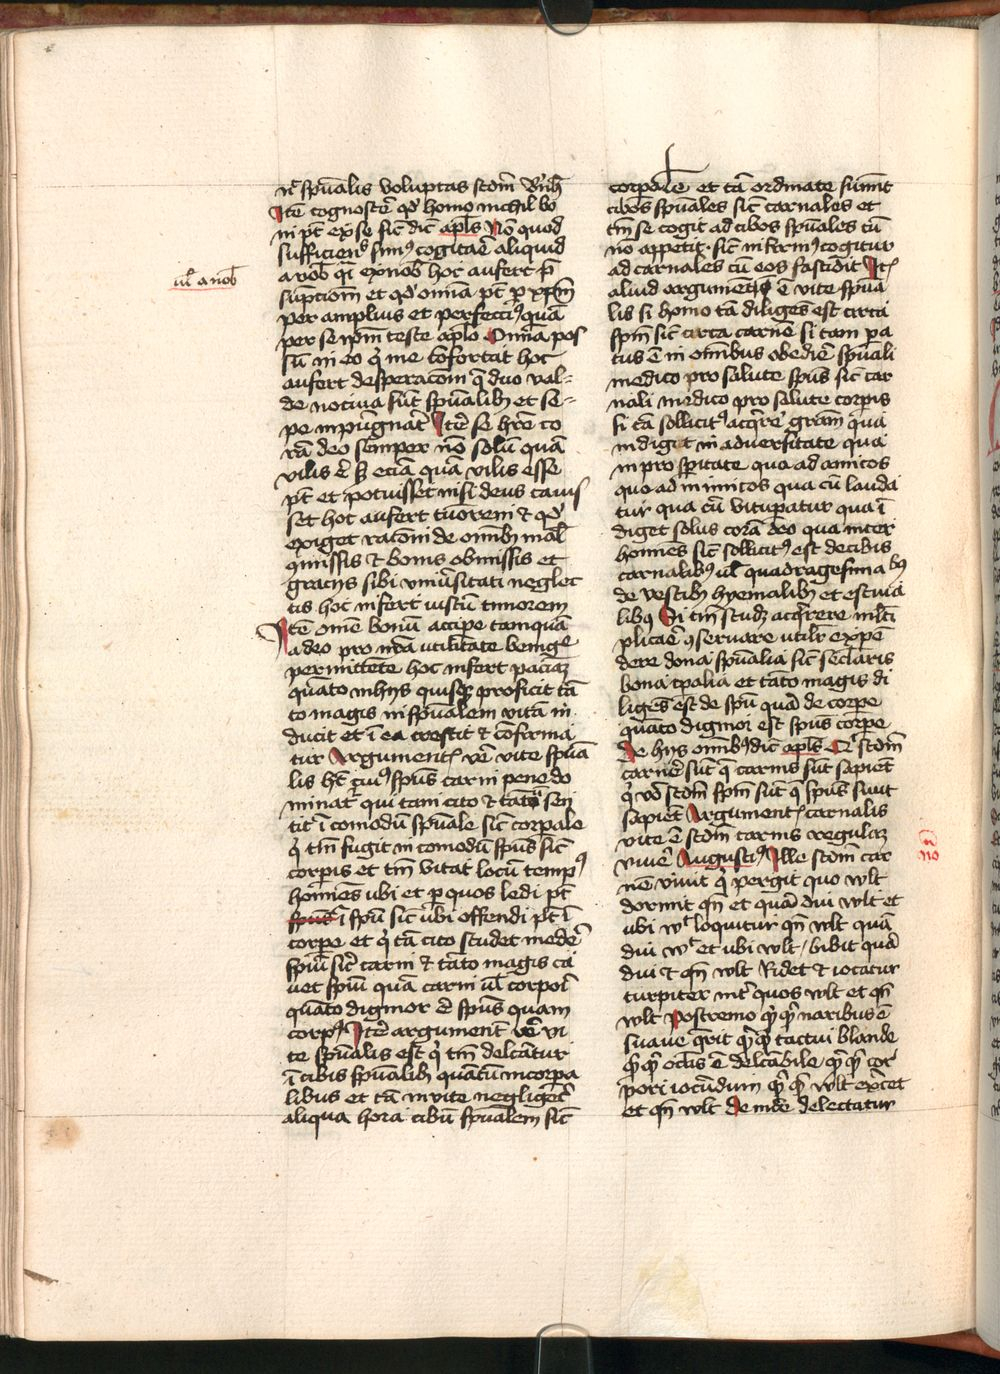 nr̄ spūalis voluptas scdm̄ Bn̄h
Itē cognoscē̄ qd̕ homo nichil bo
ni pt̄ ex se sic̄ dic̄ apl̄s Nō quod
sufficiens simꝰ cogitaē aliquid
a nob̄ qi ex nob̄ hoc aufert p̄
sūptiom̄ et qd̕ om̄ia pt̄ p xp̄m
per amplius et perfectiꝰ quā
per se ip̄m teste apl̄o Om̄ia pos
sū in eo q̕ me cōfortat hoc
aufert desperacōm q̄ duo val-
de nociua sūt spūalibꝫ et se-
pe inpūgnāt Itē se hr̄e co
rā deo semper nō solū quā
vilis ē sꝫ eciā quā vilis esse
pt̄ et potuisset nisi deus cauis
set hoc aufert tuorem ⁊ qd̕
exiget racōm de om̄ibꝫ mal̄
9missis ⁊ bonis obmissis et
gracijs sibi vniūsitati neglec
tis hoc infert iustū timorem
Itē om̄e bonū accipe tamquā
a deo pro nr̄a vtilitate benigē
permittēte hoc infert paciāꝫ
quāto in hijs quisqꝫ proficit tā
to magis in spūalem vitā in
ducit et ī ea crescit ⁊ cōfirma
tur Argumentū vē vite spūa
lis hꝫ cuiꝰ spūs carni pene do
minat᷑ qui tam cito ⁊ tātū sen
tit ī comodū spūale sic̄ corpale
q̕ tm̄ fugit incomodū spūs sic̄
corp̄is et tm̄ vitat locū tempꝰ
hom̄es vbi et p quos ledi pt̄
spūs ī spū sic̄ vbi offendi pt̄ ī
corpe et q̕ tā cito studet medē̄
spūi sic̄ carni ⁊ tāto magis ca
uet spūi quā carni vl̄ corpori
quāto dignior ē spūs quam
corpꝰ Itē argument̄ vē vi
te spūalis est q̕ tm̄ delc̄atur
ī cibis spūalibꝫ quātū in corpa
libus et tā inuite negliger̄
aliqua hora cibū spūalem sic̄
vl̄ a nob̄
corpale et tā ordinate sumit
cibos spūales sic̄ carnales et
tm̄ se cogit ad cibos spūales cū
nō appetit sic̄ infirmꝰ cogitur
ad carnales cū eos fastidit Itē
aliud argumētū ē vite spūa
lis si homo tā diligēs est circa
spm̄ sic̄ circa carnē si tam pa
tus ē in om̄ibus obedire spūali
medico pro salute spūs sic̄ car
nali medico pro salute corpis
si tā sollicitꝰ acq̄rē grām qua
indiget in aduersitate qua
in prosperitate qua ad amicos
qua ad inimicos qua cū lauda
tur qua cū vitupatur qua ī
diget solus corā deo qua inter
hom̄es sic̄ sollicitꝰ est de cibis
carnalibꝫ vl̄ quadragesimabꝰ
de vestibꝫ hyemalibꝫ et estiua
libꝫ Si tm̄ studꝫ acq̄rere ml̄ti
plicaē 9seruare vtilr̄ expē
dere dona spūalia sic̄ sec̄laris
bona tpalia et tāto magis di
ligēs est de spū quā de corpe
quāto dignior est spūs corpe
De hijs om̄ibꝰ dic̄ apl̄s Qi scdm̄
carnē sūt q̄ carnis sūt sapiēt
q̕ vō scdm̄ spm̄ sūt q̄ spūs sunt
sapiēt Argumentū carnalis
vite ē scdm̄ carnis regulaꝫ
viuē Augustiꝰ Ille scdm̄ car
nē viuit q̕ pergit quo wlt
dormit qn̄ et quā diu wlt et
vbi wl̄ loquitur qn̄ wlt quā
diu wl̄ et vbi wlt / bibit quā
diu ⁊ qn̄ wlt Ridet ⁊ iocatur
turpiter int̄ quos wlt et qn̄
wlt Postremo q̕cq̕ naribus ē
suaue q̄rit q̕cq̕ tactui blande
q̕cq̕ oclīs ē delc̄abile q̕cq̕ cor
pori iocūdum q̕cq̕ wlt exc̄et
et qn̄ wlt De inde delectatur
no